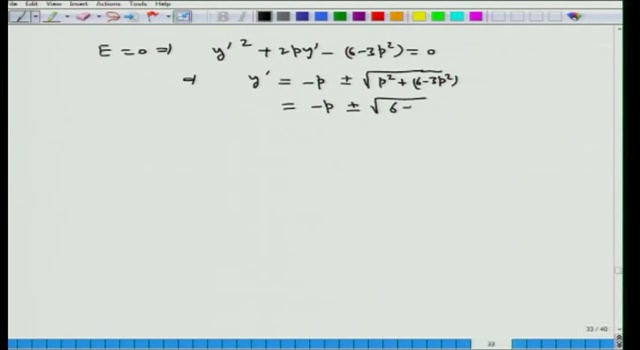 Edit View Insert Actions Tools Help
E = 0 ⇒ y'² + 2py' - (6-3p²) = 0
⇒ y' = -p ± √p² + (6-3p²)
= -p ± √6-
33 / 40
33